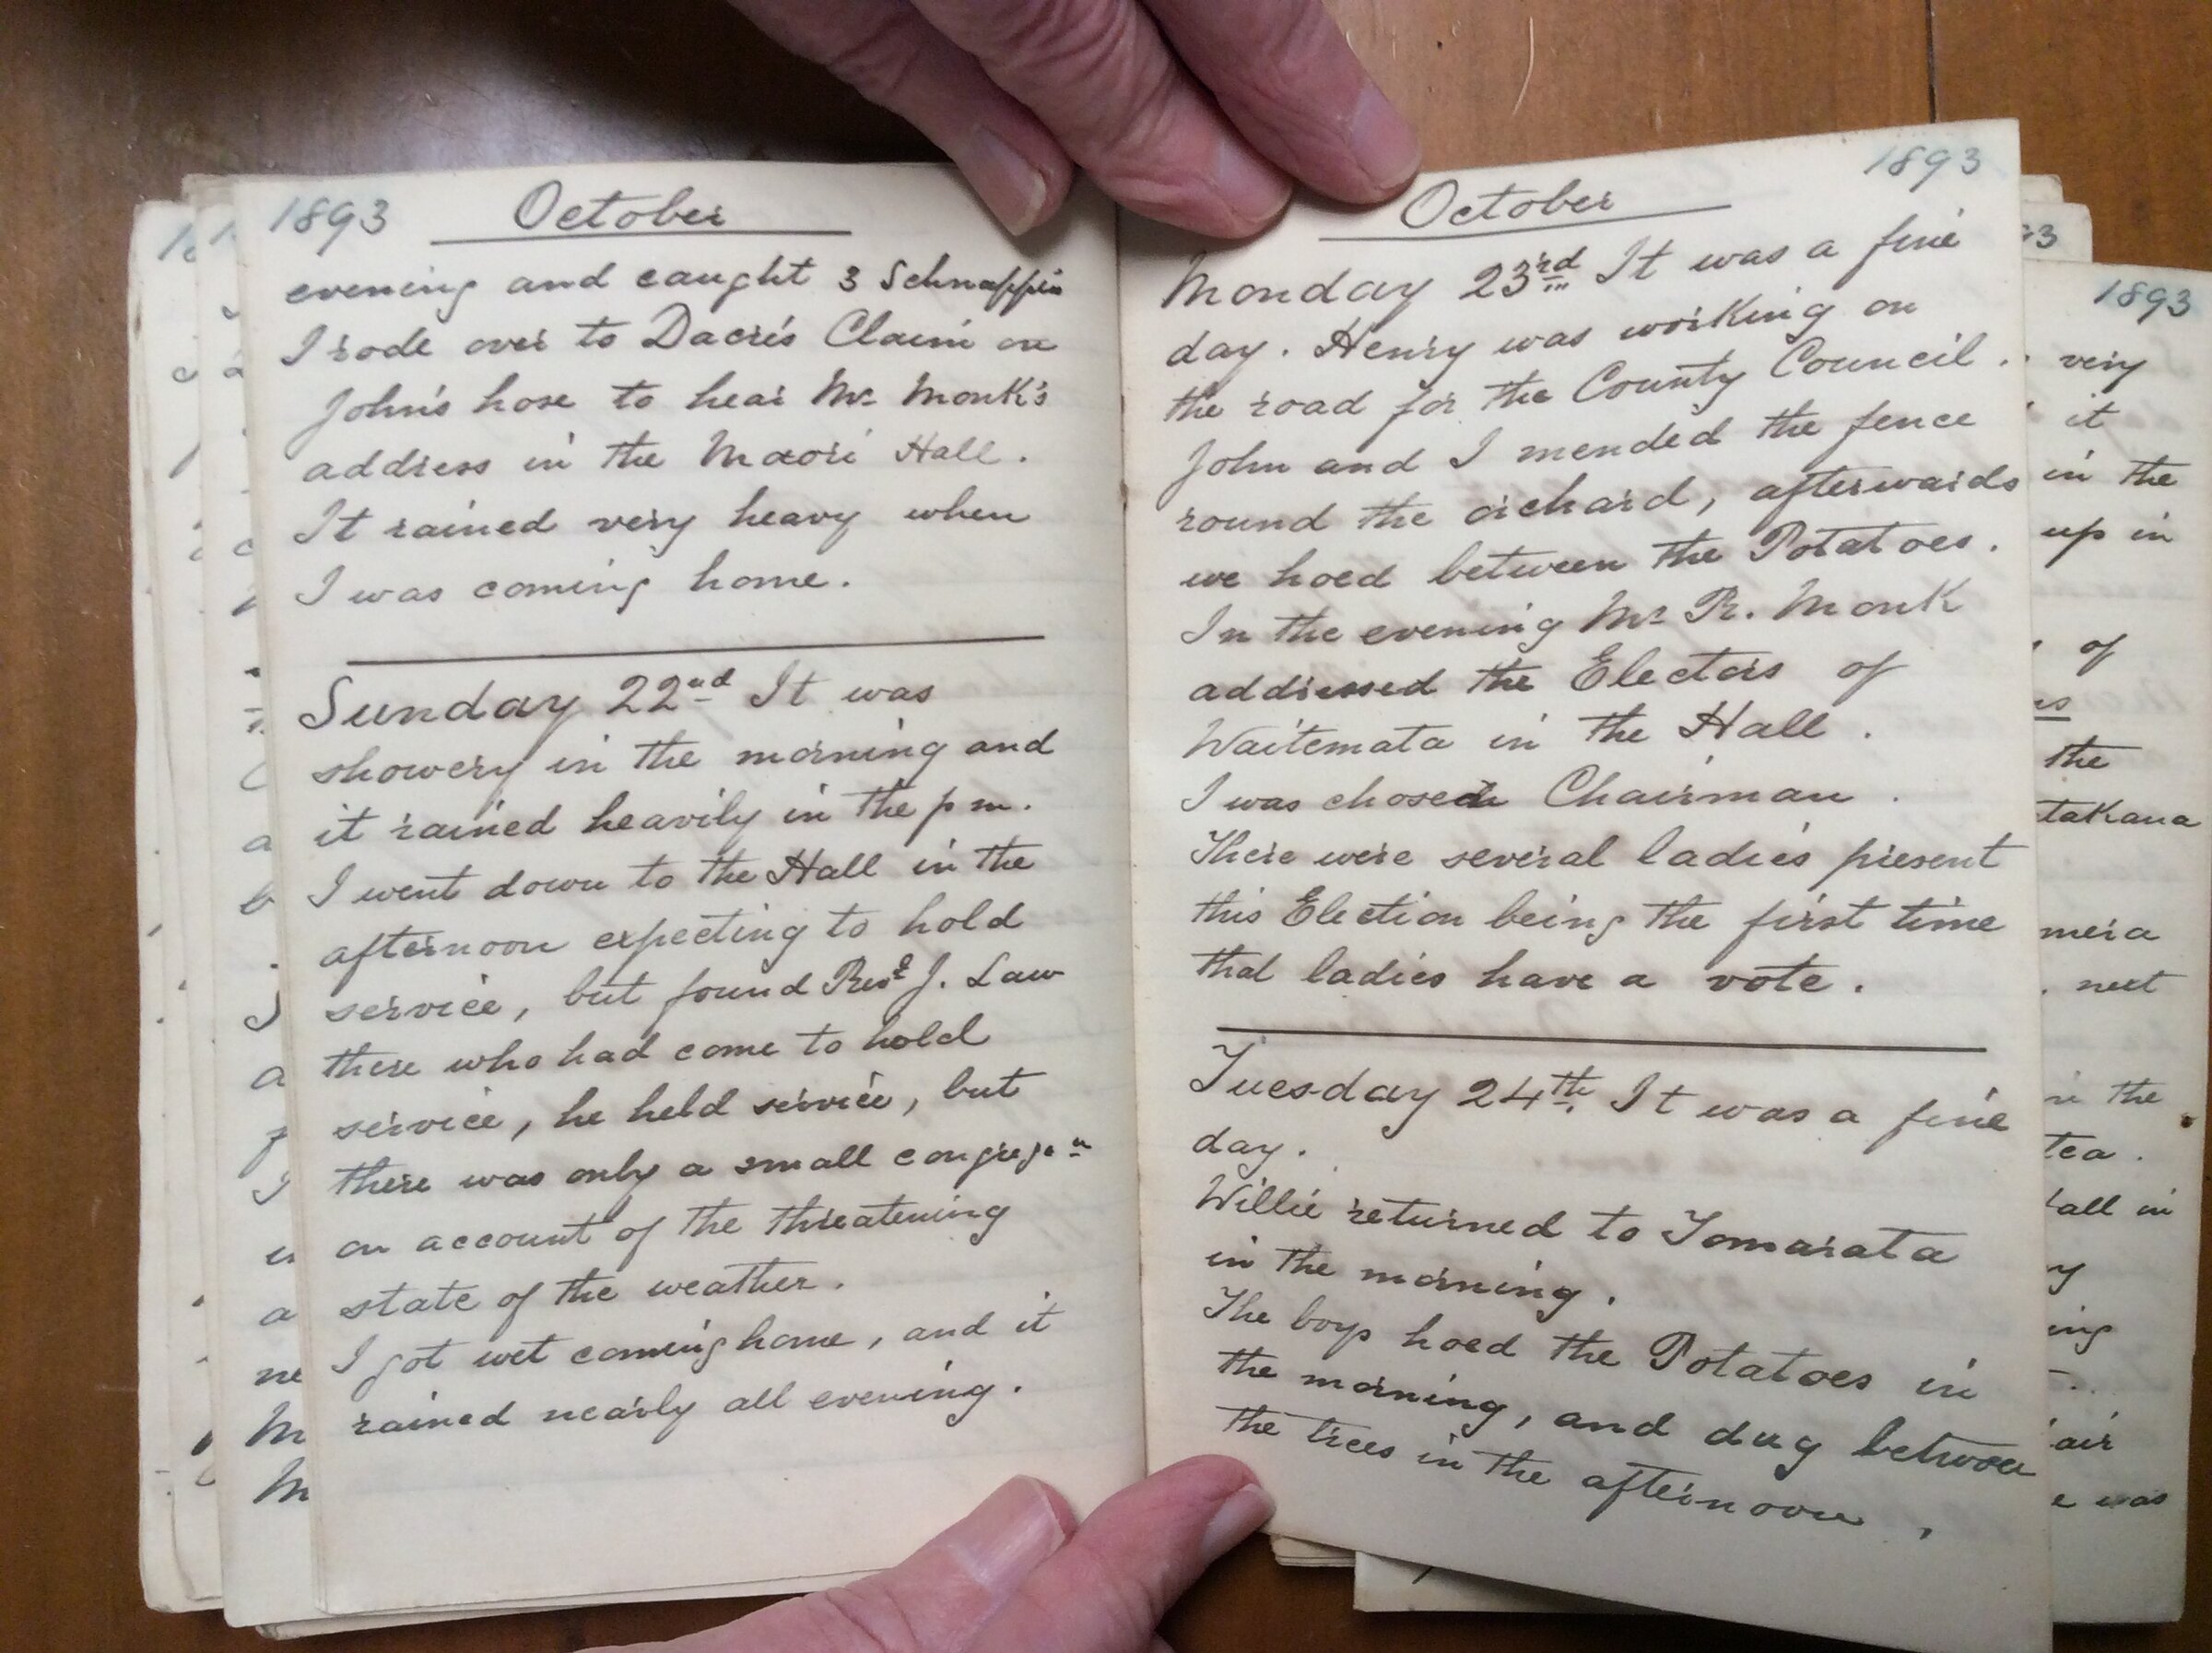 1893 October
evening and caught 3 Schnappers
I rode over to Dacre's Claim on
John's hose to hear Mr Monk's
address in the Maori Hall.
It rained very heavy when
I was coming home.
Sunday 22nd It was
showery in the morning and
it rained heavily in the p m.
I went down to the Hall in the
afternoon expecting to hold
service, but found Revd J. Law
there who had come to hold
service, he held service, but
there was only a small congregan
on account of the threatening
state of the weather.
I got wet coming home, and it
rained nearly all evening.
October 1893
Monday 23rd It was a fine
day. Henry was working on
the road for the County Council.
John and I mended the fence
round the orchard, afterwards
we hoed between the Potatoes.
In the evening Mr R. Monk
addressed the Electors of
Waitemata in the Hall.
I was chosen Chairman.
There were several ladies present
this Election being the first time
that ladies have a vote.
Tuesday 24th. It was a fine
day.
Willie returned to Tomarata
in the morning.
The boys hoed the Potatoes in
the morning, and dug between
the trees in the afternoon.
93
1893
very
it
in the
up in
of
the
takana
mera
next
the
tea.
all in
ing
air
was